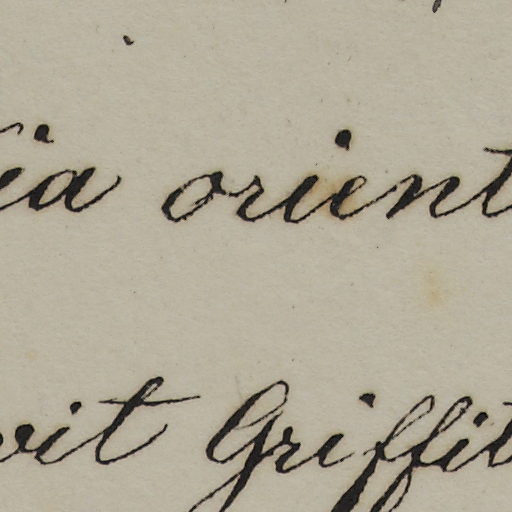 ia orient
vit Griffit